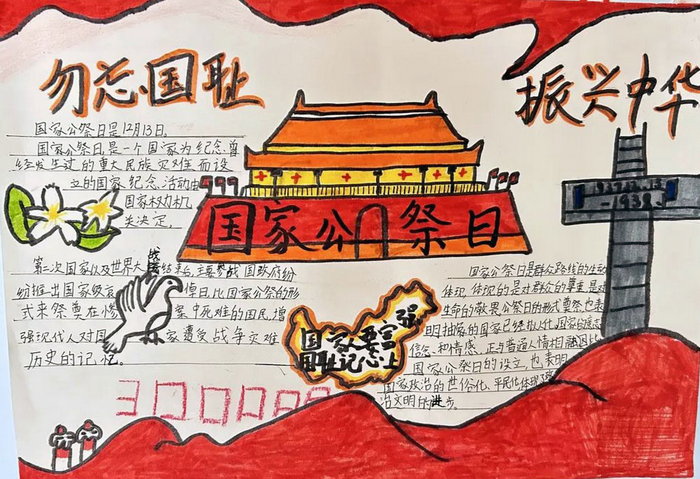 勿忘国耻
振兴中华
国家公祭日是12月13日。
国家公祭日,是一个国家为纪念曾
经发生过的重大民族灾难而设
立的国家纪念活动由
国家权力机
关决定。
国家公祭日
第二次国家以及世界大战结束后,主要参战国政府纷
纷推出国家级哀悼日,以国家公祭的形
式来祭奠在惨案中死难的国民,增
强现代人对国家遭受战争灾难
历史的记忆。
国家要富强
国耻记心上
国家公祭日是群众路线的生动
体现,体现的是对群众的尊重,是对
生命的敬畏公祭日的形式尊祭,也表
明抽象的国家已经拟人化,国家的意志
信念和情感,正与普通人情相融因此
国家公祭日的设立,也表明
国家政治的世俗化、平民化体现
治文明的进步。
300000
-1938.